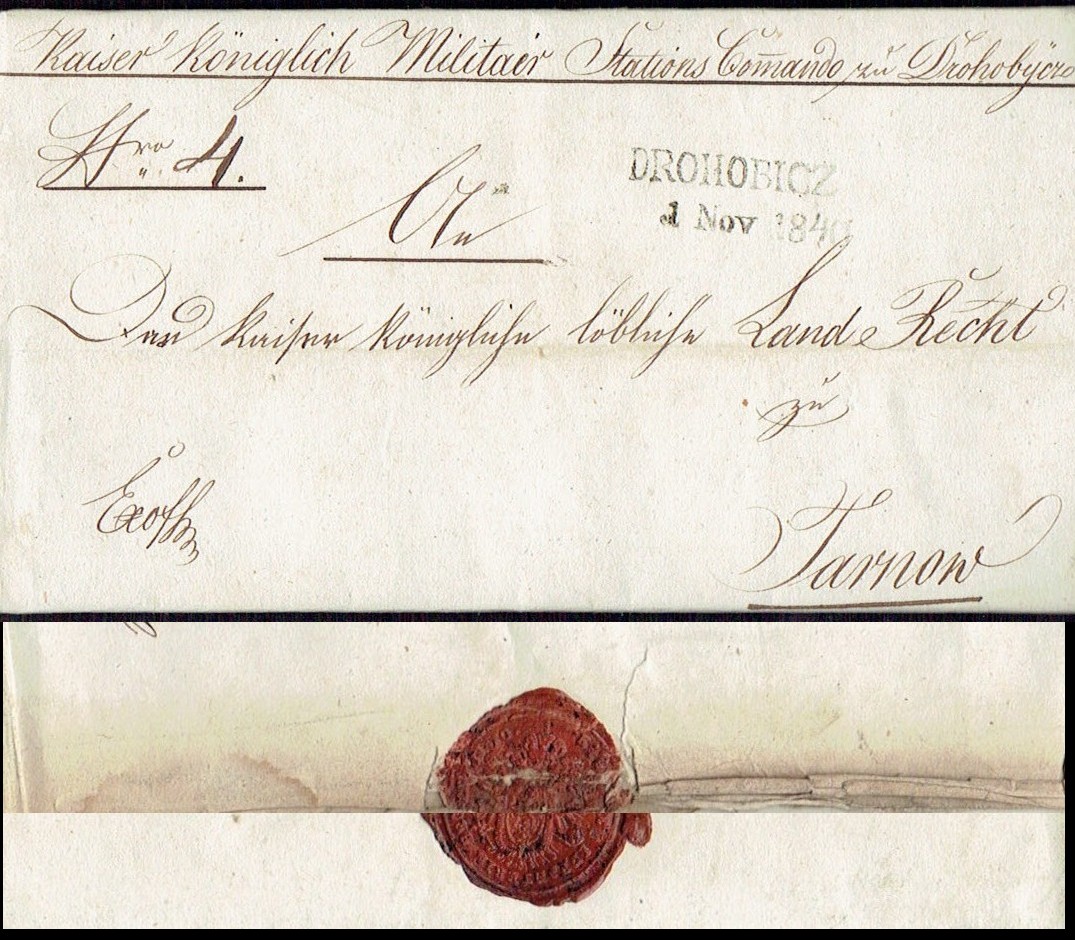 Kaiser Königlich Militaer Stations Com̅ando zu Drohobycz
Nro 4.
DROHOBICZ
1 Nov 184
An
Das kaiser königliche löbliche Land Recht
zu
Exoff
Tarnow